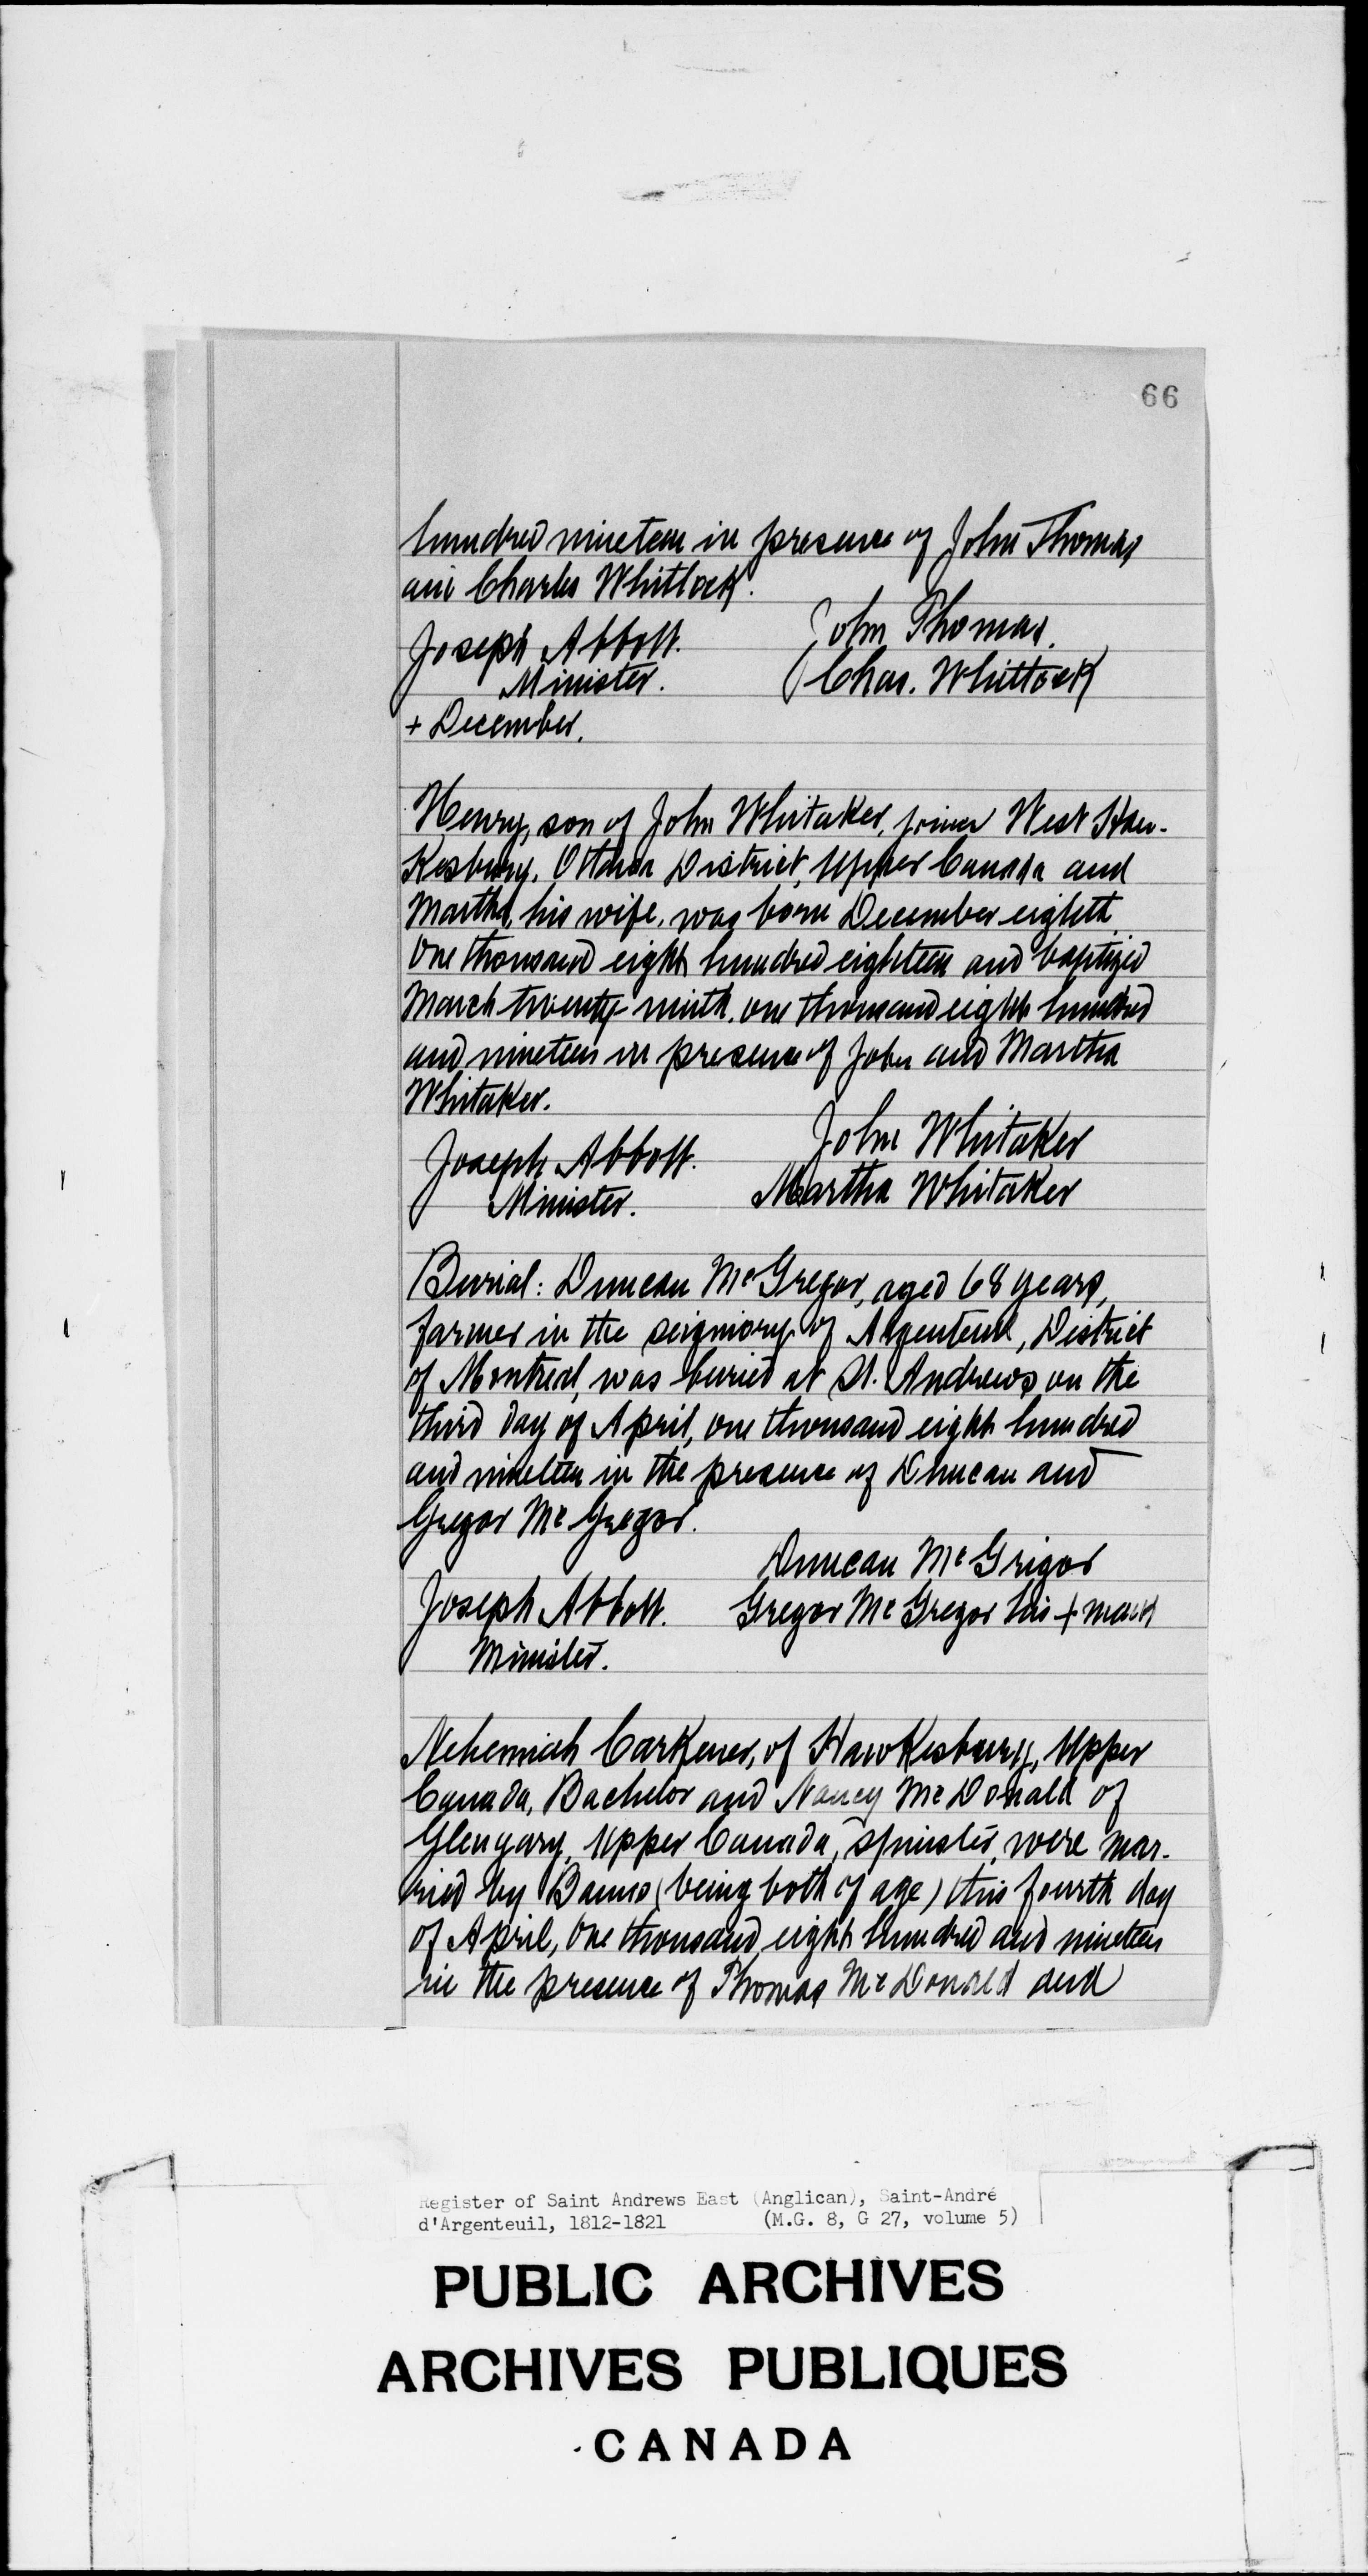 66
hundred nineteen in presence of John Thomas
and Charles Whitlock.
Joseph Abbott. John Thomas.
Minister. Chas. Whitlock
+ December.
Henry, son of John Whitaker, joiner West Haw-
kesbury, Ottawa District, Upper Canada and
Martha, his wife, was born December eighth
One thousand eight hundred eighteen and baptized
March twenty-ninth, one thousand eight hundred
and nineteen in presence of John and Martha
Whitaker.
Joseph Abbott. John Whitaker
Minister. Martha Whitaker
Burial: Duncan McGregor, aged 68 years,
farmer in the seigniory of Argenteuil, District
of Montreal, was buried at St. Andrews on the
third day of April, one thousand eight hundred
and nineteen in the presence of Duncan and
Gregor McGregor.
Duncan McGrigor
Joseph Abbott. Gregor McGregor his + mark
Minister.
Nehemiah Carkener, of Hawkesbury, Upper
Canada, Bachelor and Nancy McDonald of
Glengary, Upper Canada, spinster, were mar-
ried by Banns (being both of age) this fourth day
of April, One thousand eight hundred and nineteen
in the presence of Thomas McDonald and
Register of Saint Andrews East (Anglican), Saint-André
d'Argenteuil, 1812-1821 (M.G. 8, G 27, volume 5)
PUBLIC ARCHIVES
ARCHIVES PUBLIQUES
CANADA